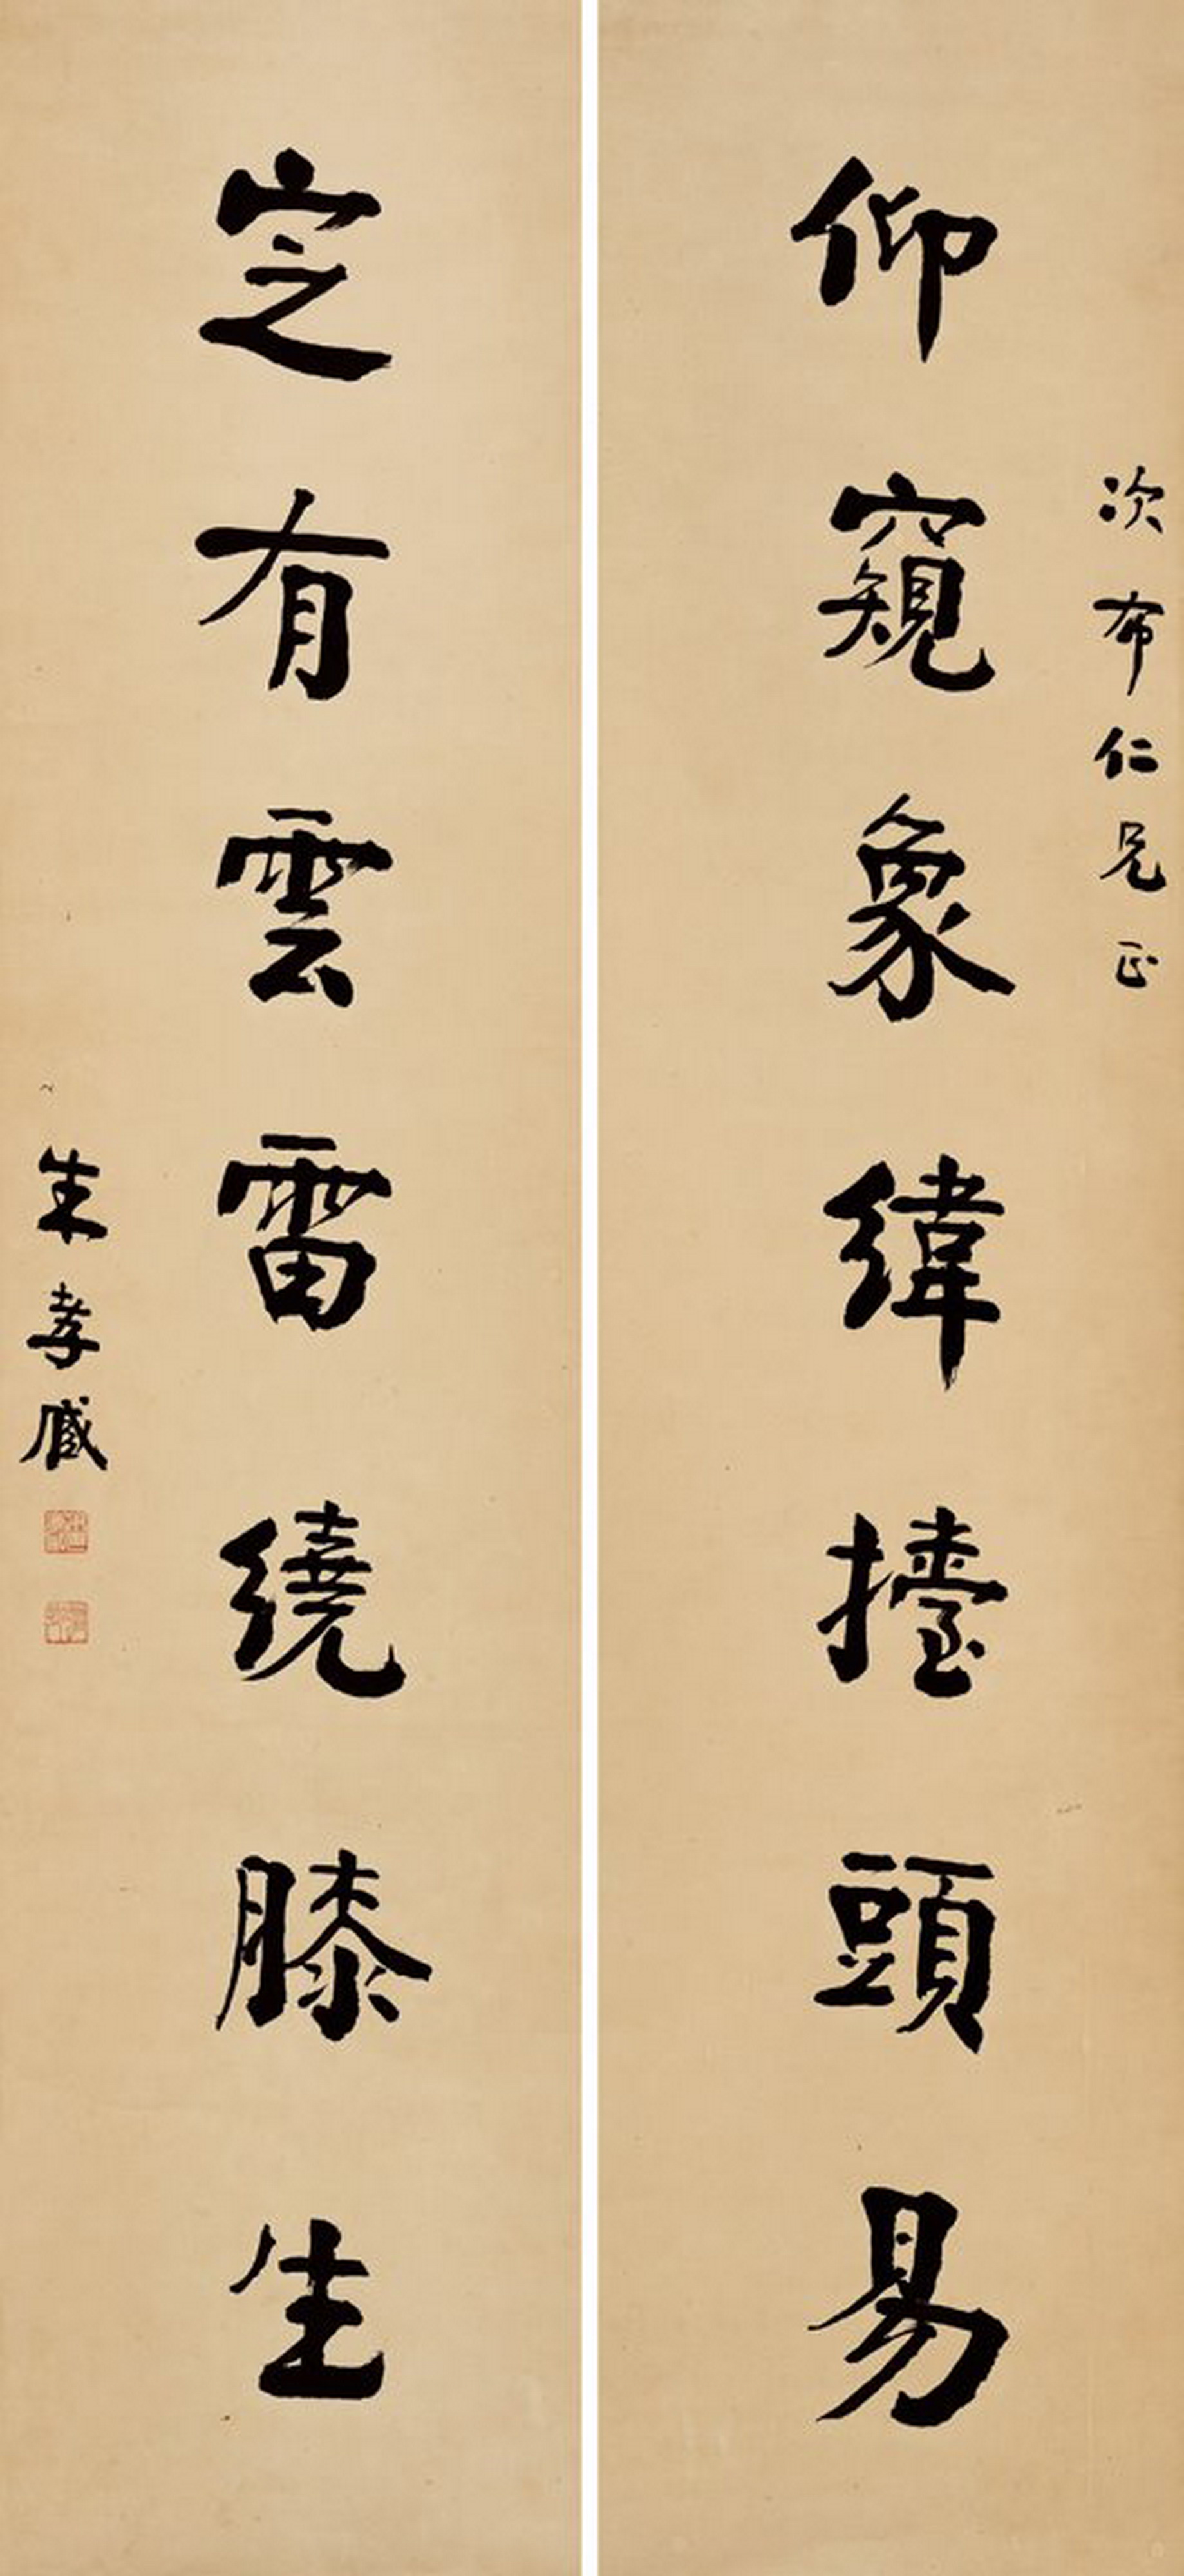 次布仁兄正
仰窺象緯擡頭易
定有雲雷繞膝生
朱孝臧